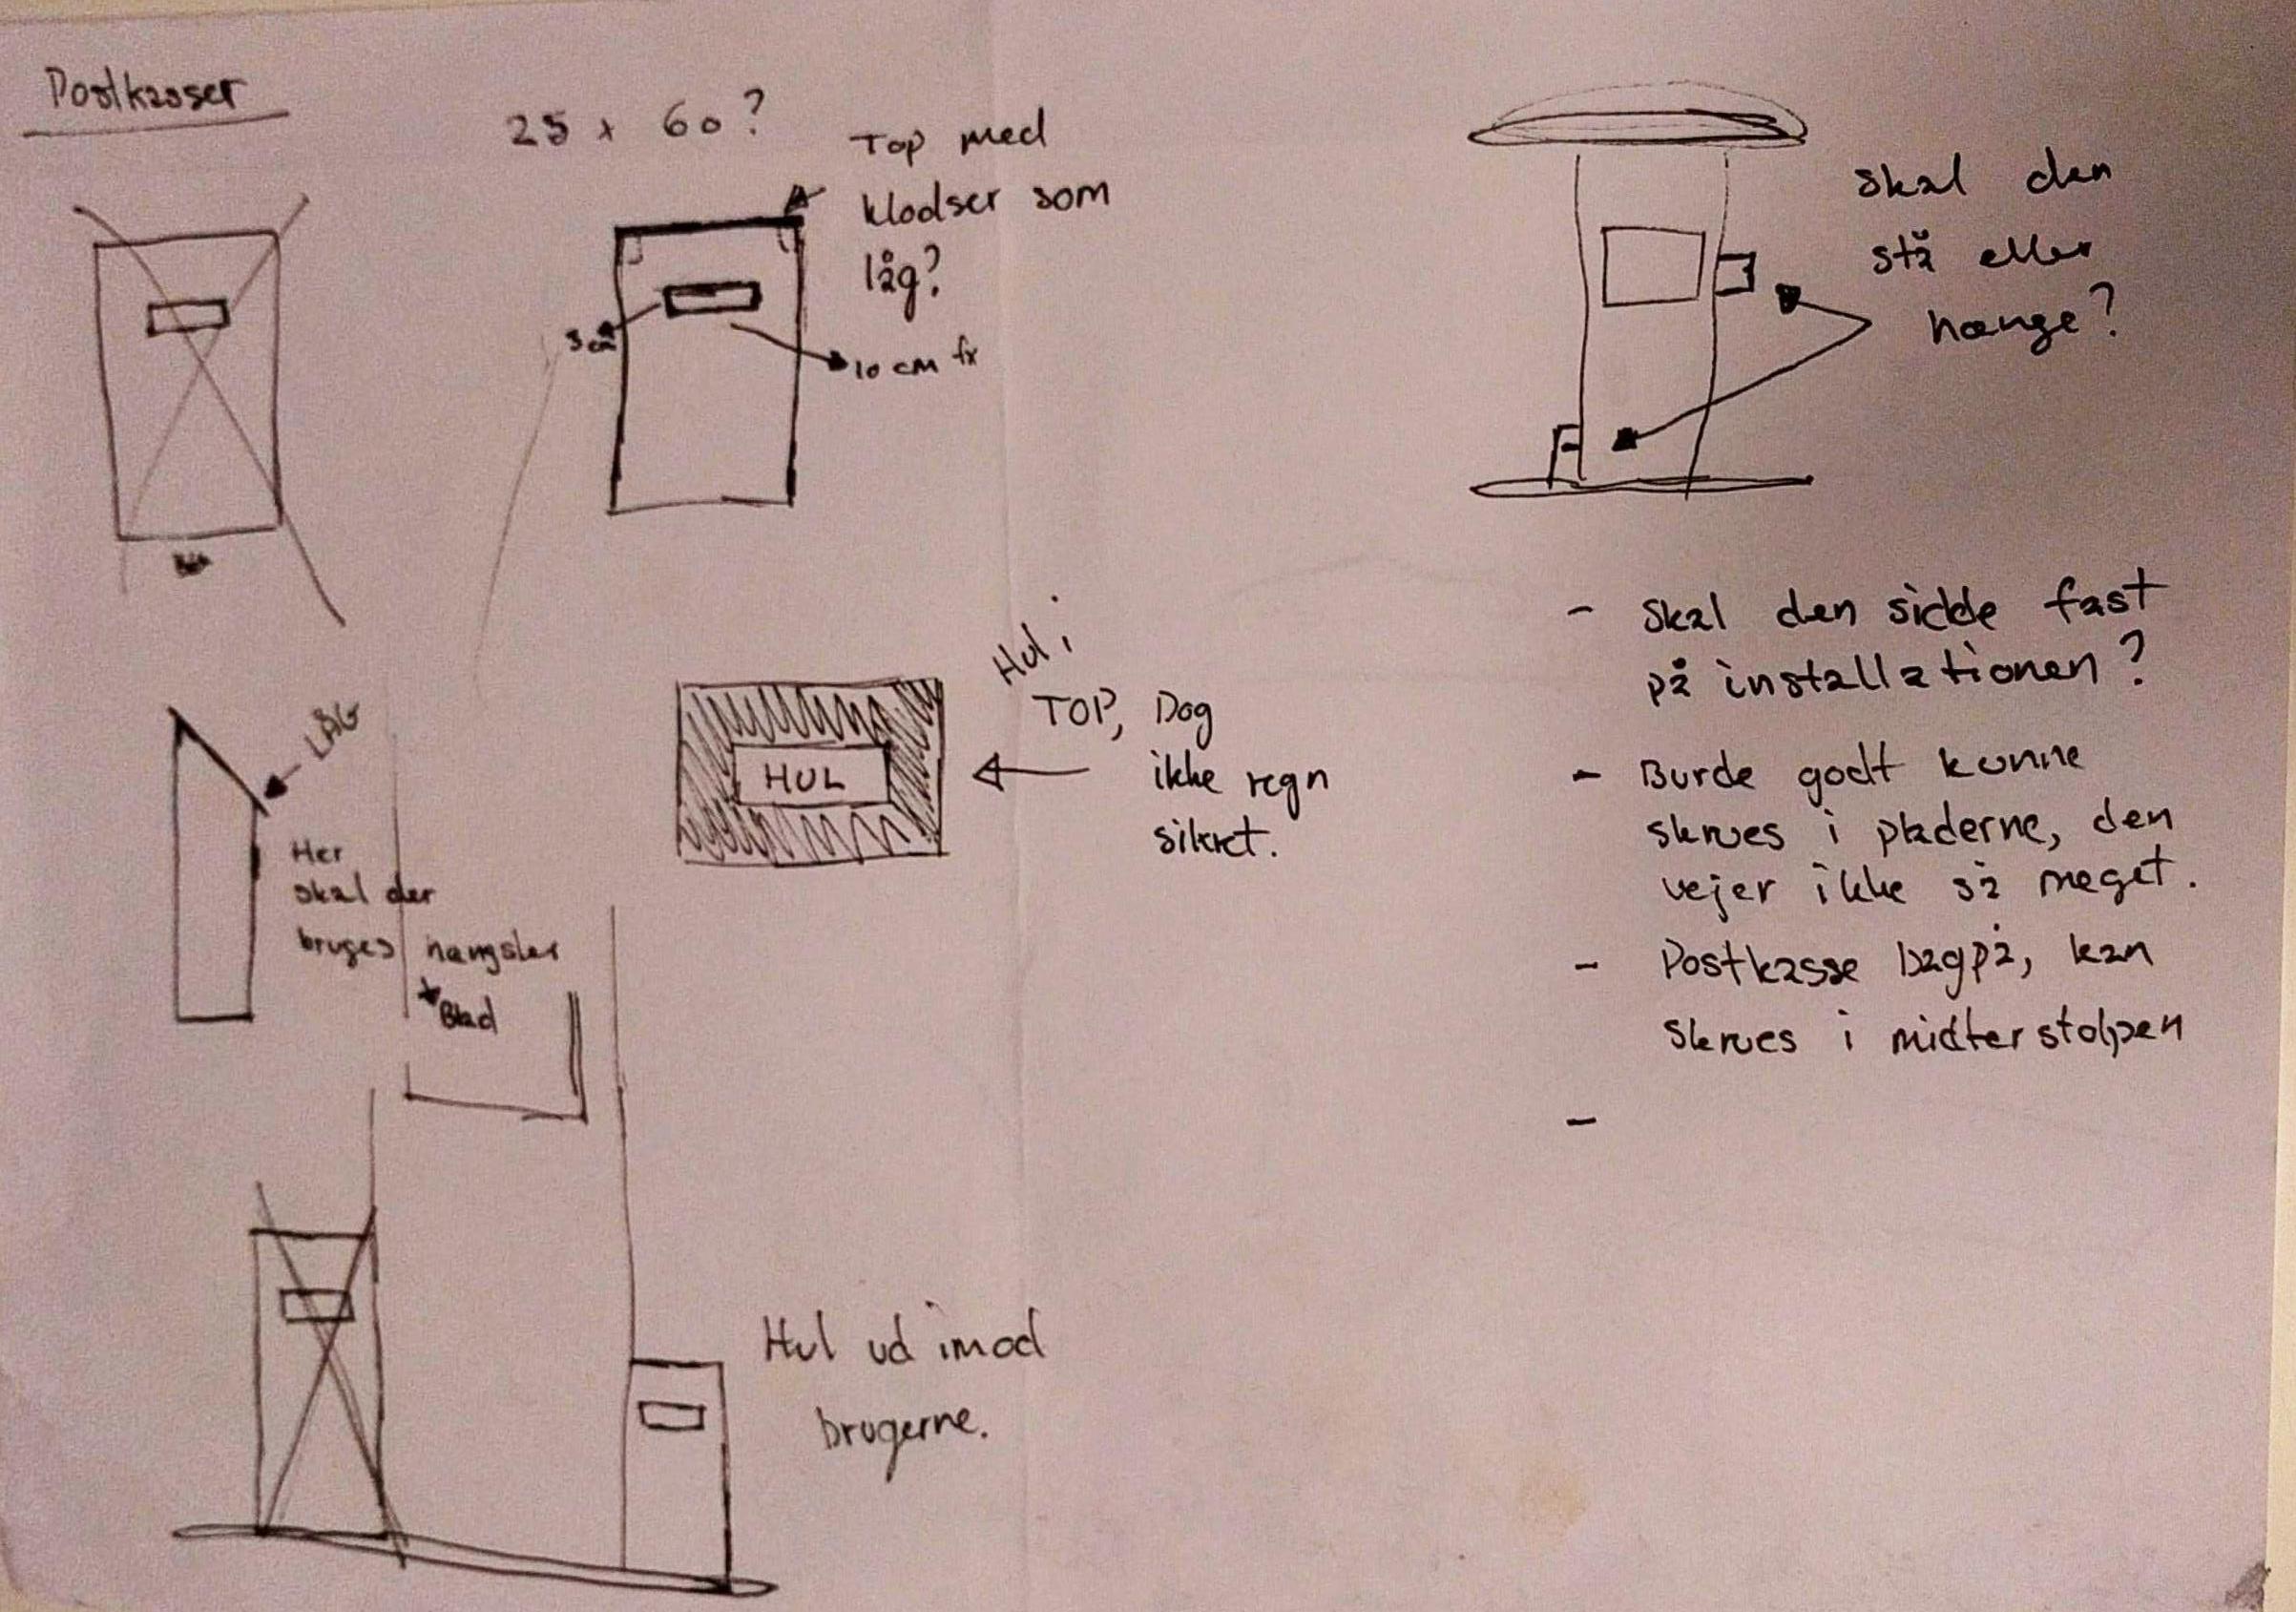 Postkasser
25 x 60?
Top med
klodser som
låg?
3 cm
10 cm fx
LÅG
Her
skal der
bruges hængsler
Hul i
TOP, Dog
ikke regn
sikret.
HUL
Hul ud imod
brugerne.
Skal den
stå eller
hænge?
- Skal den sidde fast
på installationen?
- Burde godt kunne
skrues i pladerne, den
vejer ikke så meget.
- Postkasse bagpå, kan
skrues i midterstolpen
-